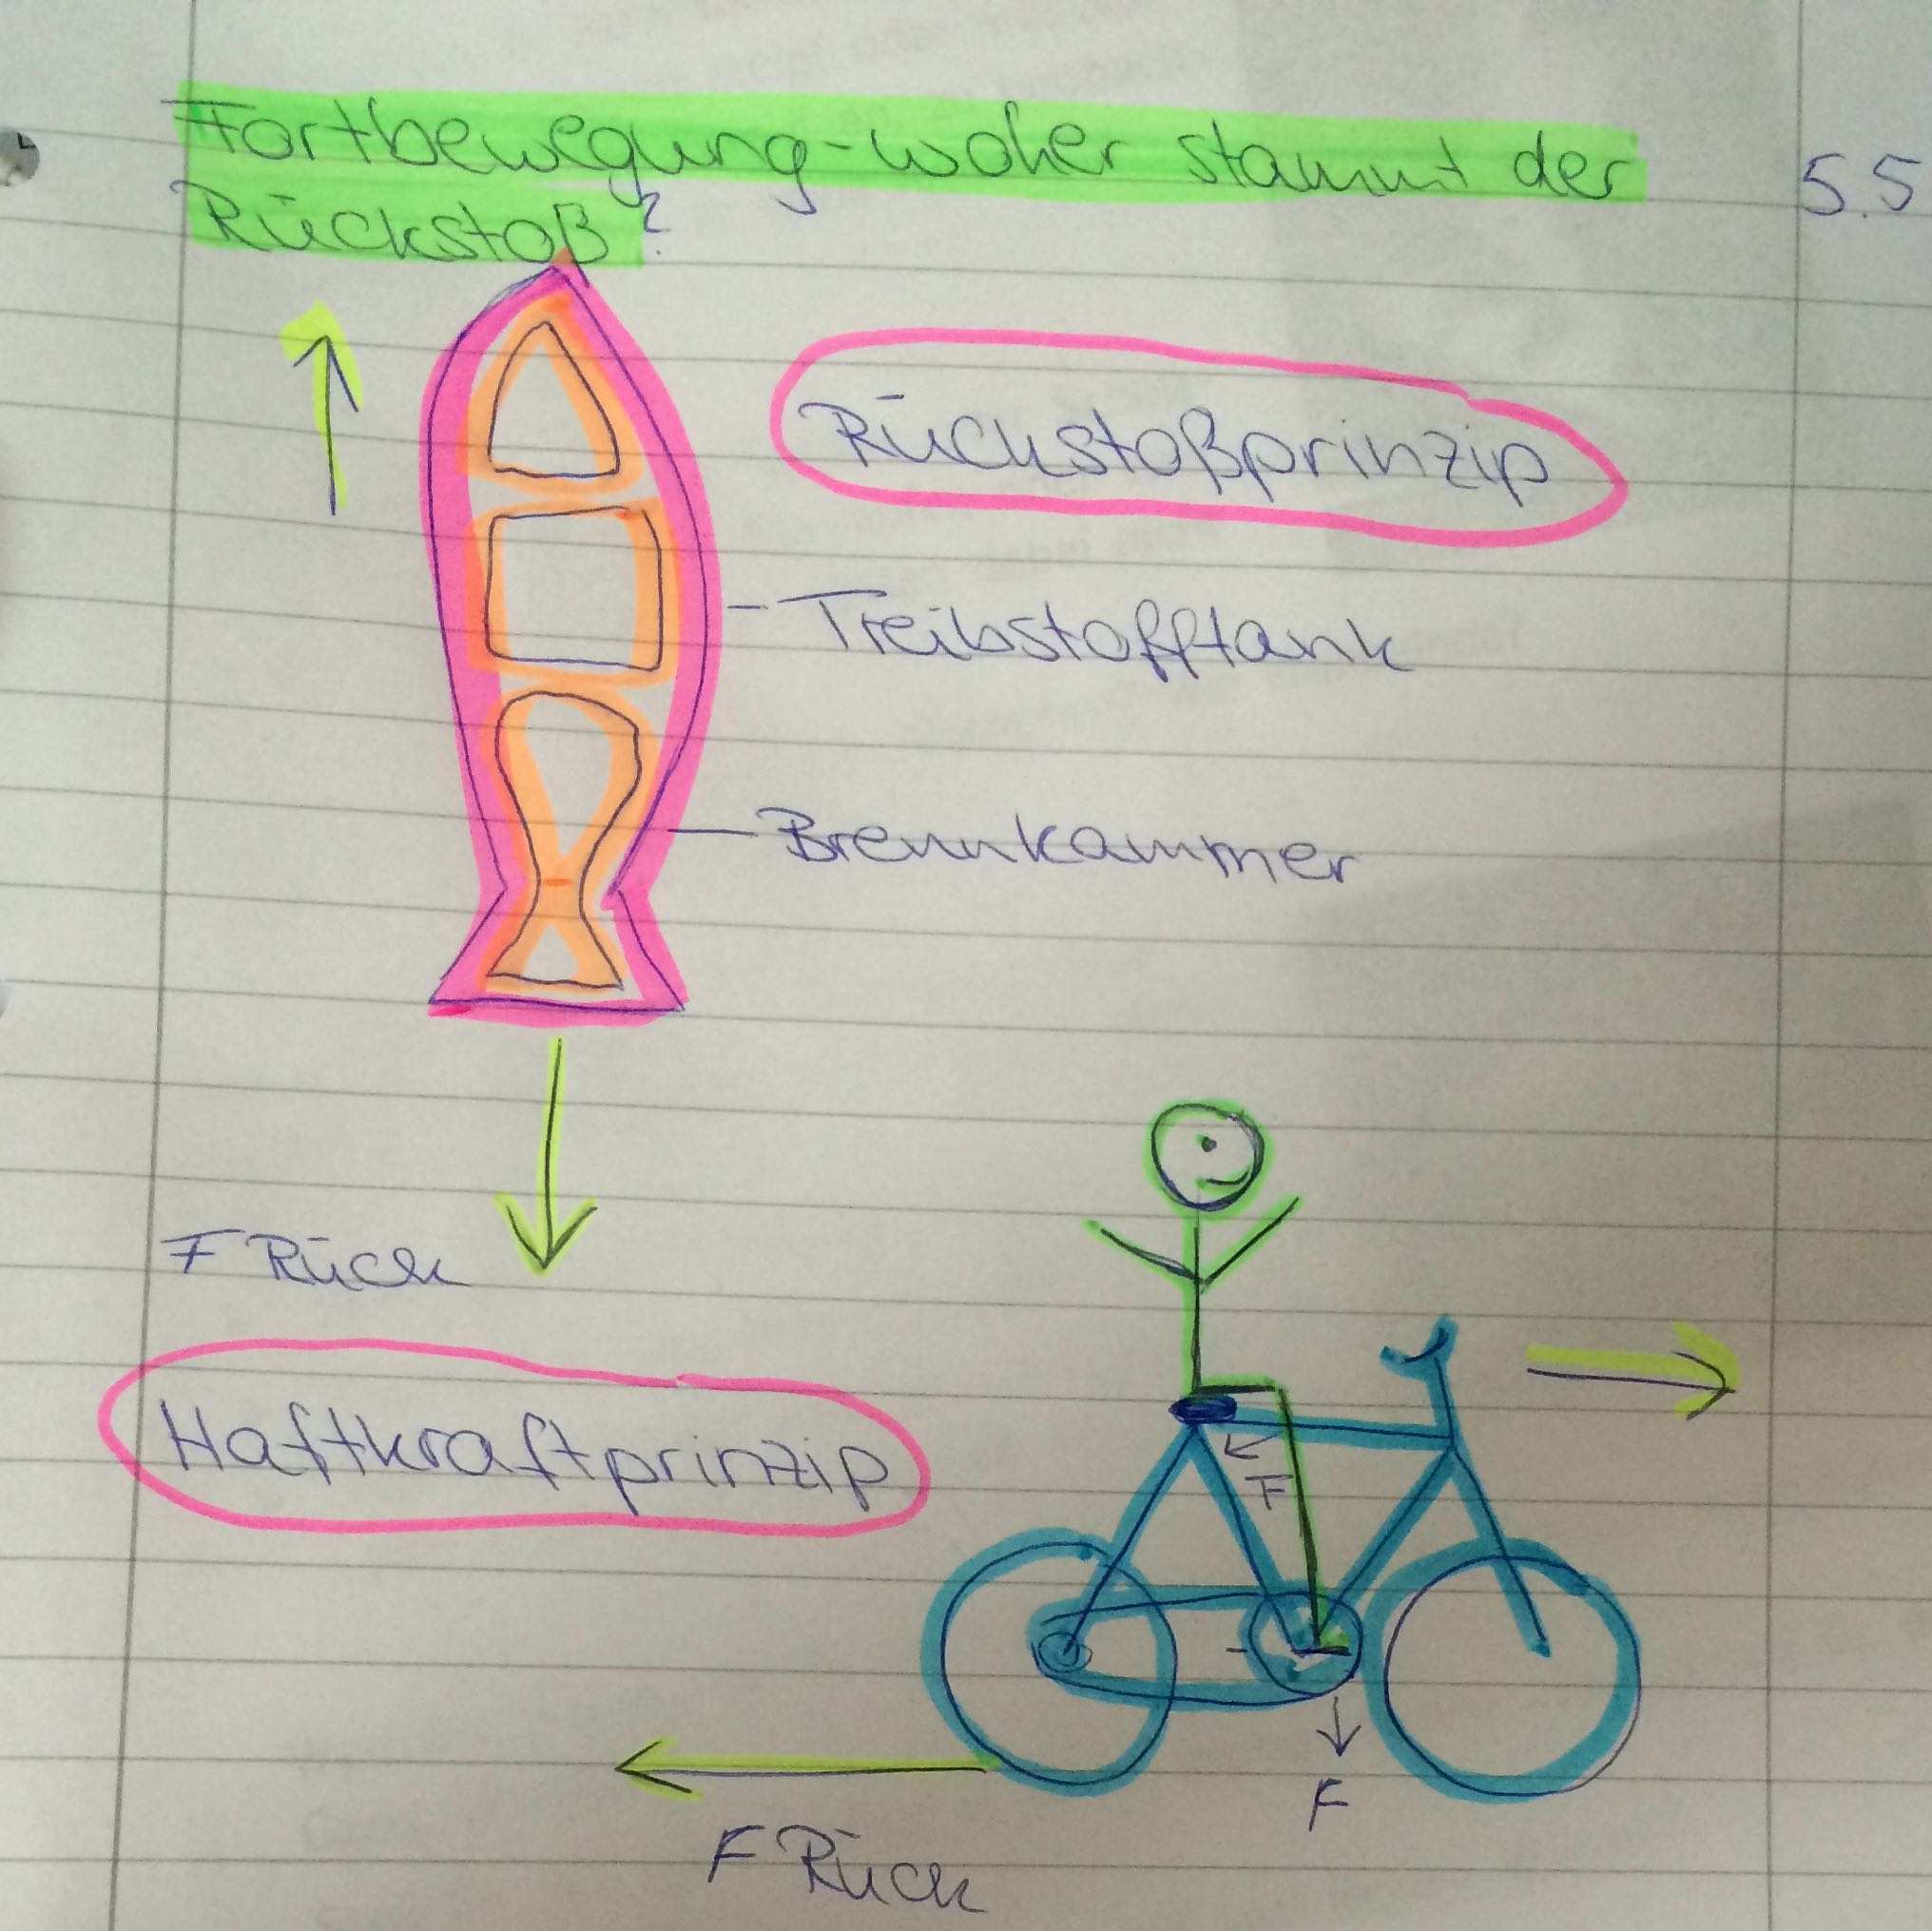 Fortbewegung-woher stammt der
Rückstoß?
5.5
Rückstoßprinzip
Treibstofftank
Brennkammer
F Rück
Haftkraftprinzip
F
F
F Rück